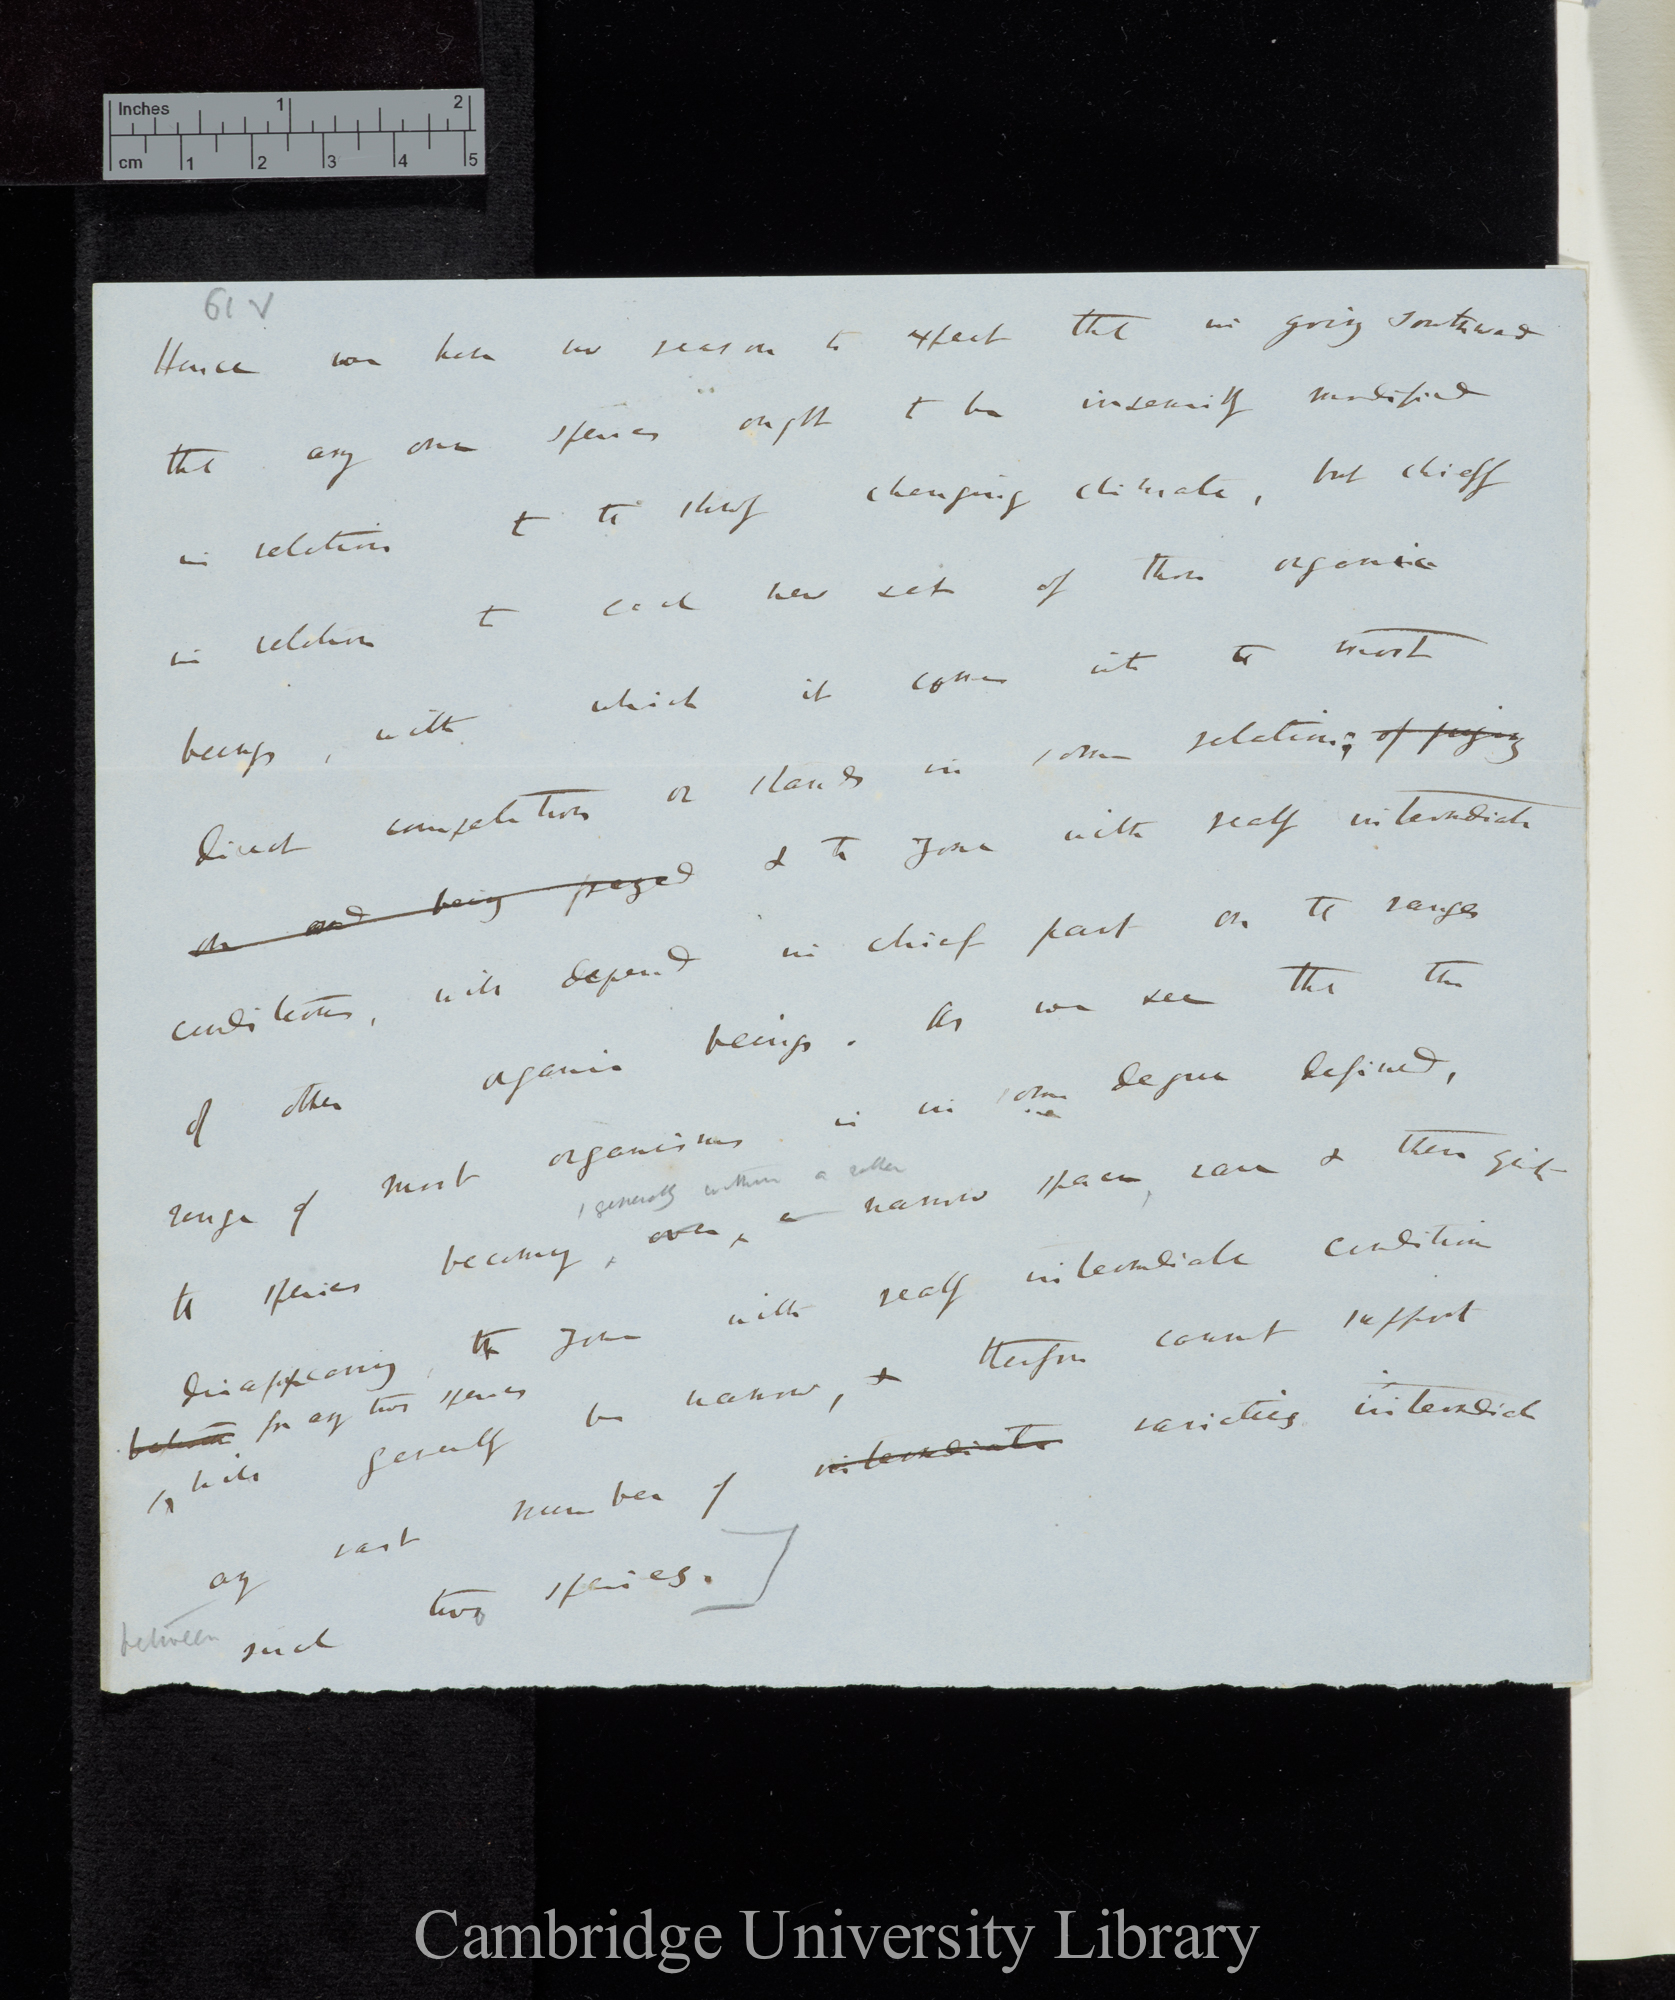 Inches 1 2
cm 1 2 3 4 5
61 v
Hence we have no reason to expect that in going southward
that any one species ought to be insensibly modified
in relation to the slowly changing climate, but chiefly
in relation to each new set of those organic
beings, with which it comes into the most
direct competition or stands in some relation;
or and being preyed & the zone with really intermediate
conditions, will depend in chief part on the ranges
of other organic beings. As we see that the
range of most organisms is in some degree defined,
, generally within a rather
the species becoming, over, a narrow space, rare & then
disappearing, the zone with really intermediate condition
between for any two species
will generally be narrow, & therefore cannot support
any vast number of intermediate varieties intermediate
between such two species.]
Cambridge University Library